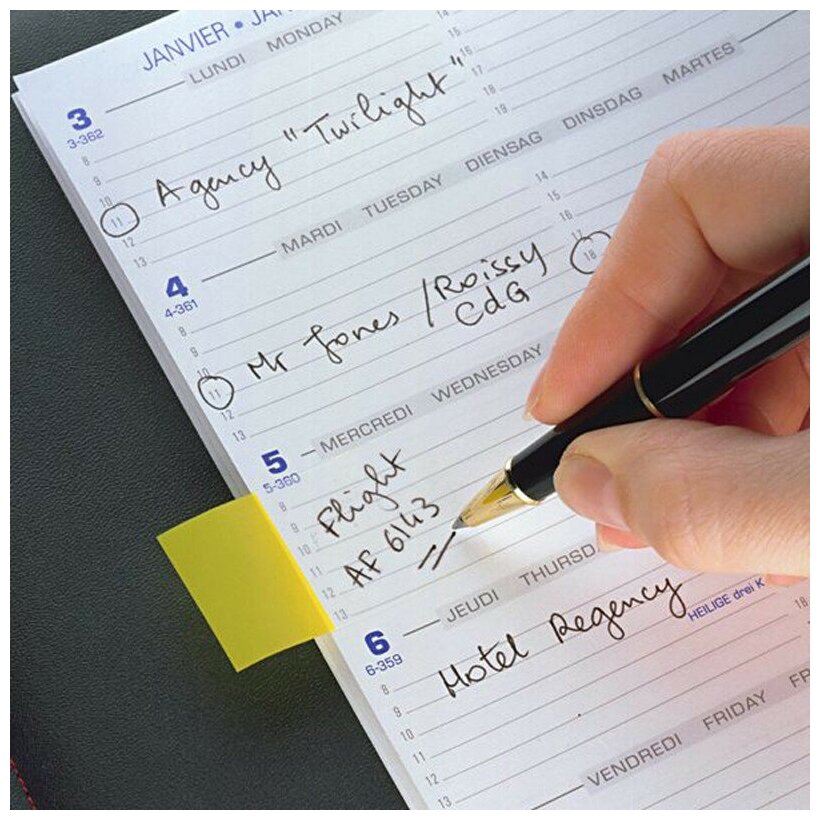 JANVIER • JAN
LUNDI MONDAY
3
3-362
8
9
10
11
12
13
14
15
16
17
18
19
Agency "Twilight"
MARDI TUESDAY DIENSAG DINSDAG MARTES
4
4-361
8
9
10
11
12
13
14
15
16
17
18
Mr Jones / Roissy
CdG
MERCREDI WEDNESDAY
5
5-360
8
9
10
11
12
13
Flight
AF 6143
JEUDI THURSD
6
6-359
HEILIGE drei K
8
9
10
11
12
13
18
Hotel Regency
VENDREDI FRIDAY FR